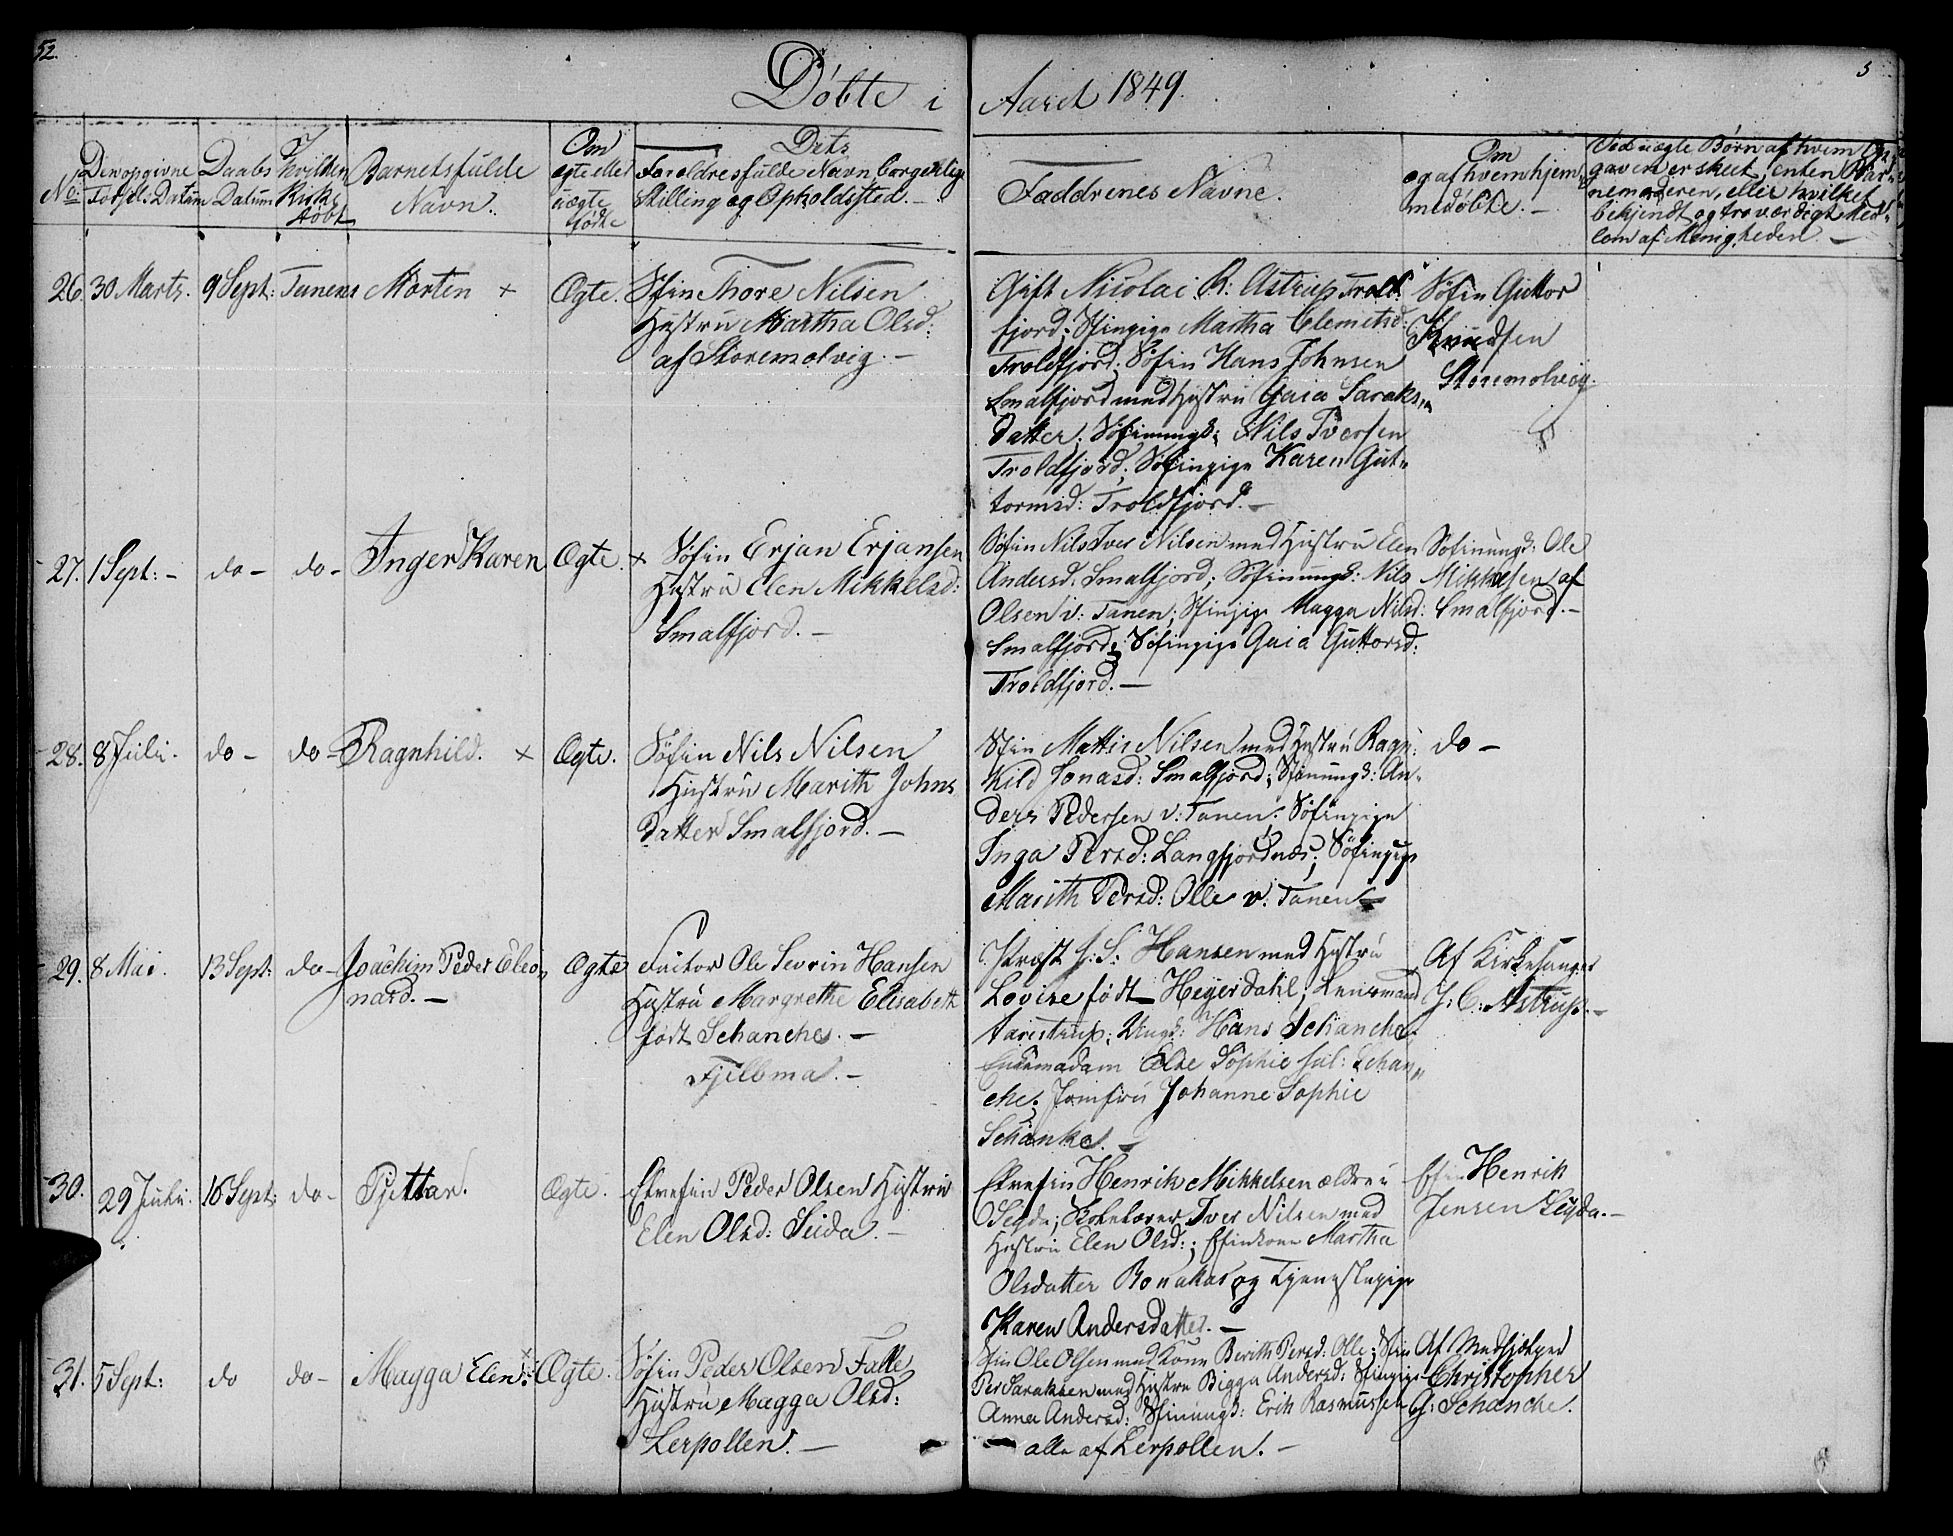 52.
Döbte i Aaret 1849.
No
Den opgivne Födsels Datum
Daabs Datum
I hvilken Kirke döbt
Barnets fulde Navn.
Om ægte eller uægte födte
Dets Forældres fulde Navn, borgerlige Stilling og Opholdssted. -
Faddrenes Navne.
Om og af hvem hjemmedöbte. -
Ved uægte Børn af hvem Opgaven er skeet, enten Barnemoderen, eller hvilket bekjendt og troværdigt Medlem af Menigheden. -
26. 30 Marts. 9 Sept: Tanens Morten + Ægte.
Søfin Thore Nilsen
Hustru Martha Olsd:
af Storemolvig. -
Gift Nicolai R. Astrup Trold
fjord; Sfinpige Martha Clemetsd:
Troldfjord; Søfin Hans Johnsen
Smalfjord med Hustru Gaia Saraks„
datter; Søfinungd: Nils Iversen
Troldfjord; Søfinpige Karen Gut„
tormsd: Troldfjord. -
Søfin Guttor
Knudsen
Storemolvig.
27. 1 Sept: - do - do - Inger Karen Ægte. +
Søfin Erjan Erjansen
Hustru Elen Mikkelsd:
Smalfjord. -
Søfin Nils Iver Nilsen med Hustru Elen
Andersd: Smalfjord; Søfinungd: Nils
Olsen v: Tanen; Sfinpige Magga Nilsd:
Smalfjord; Søfinpige Gaia Guttorsd:
Troldfjord. -
Søfinungd: Ole
Mikkelsen af
Smalfjord. -
28. 8 Juli. do - do - Ragnhild. + Ægte.
Søfin Nils Nilsen
Hustru Marith Johns
datter Smalfjord. -
Sfin Mattis Nilsen med Hustru Ragn
hild Jonasd: Smalfjord; Sfinungd: An„
ders Pedersen v: Tanen; Søfinpige
Inga Persd: Langfjordnæs; Søfinpige
Marith Persd: Olle v: Tanen -
do -
29. 8 Mai. 13 Sept: do - Joachim Peder Eleo„
nard. -
Ægte
Factor Ole Sevrin Hansen
Hustru Margrethe Elisabeth
født Schanche. -
Fjelbma. -
Provst J. S: Hansen med Hustru
Lovise født Heyerdahl; Lensmand
Aarestrup; Ungd: Hans Schanche
Enkemadam Else Sophie sal: Schan„
che; Jomfru Johanne Sophie
Schanke. -
Af Kirkesanger
J: C: Astrup. -
30. 29 Juli. 16 Sept: do - Pjettar. Ægte.
Elvefin Peder Olsen Hustru
Elen Olsd: Seida. -
Elvefin Henrik Mikkelsen ældre i
Segda; Skolelærer Iver Nilsen med
Hustru Elen Olsd:; Efinkone Martha
Olsdatter Bonakas og Tjenestepige
Karen Andersdatter. -
Efin Henrik
Jensen Sigda. -
31. 5 Sept: do do - Magga Elen + Ægte.
Søfin Peder Olsen Falle
Hustru Magga Olsd:
Lerpollen. -
Sfin Ole Olsen med Kone Berith Persd: Olle; Sfin
Per Saraksen med Hustru Bigga Andersd: Sfinpige
Anna Andersd: Sfinungd: Erik Rasmussen
- alle af Lerpollen. -
Af Medhjelper
Christopher
G: Schanche.